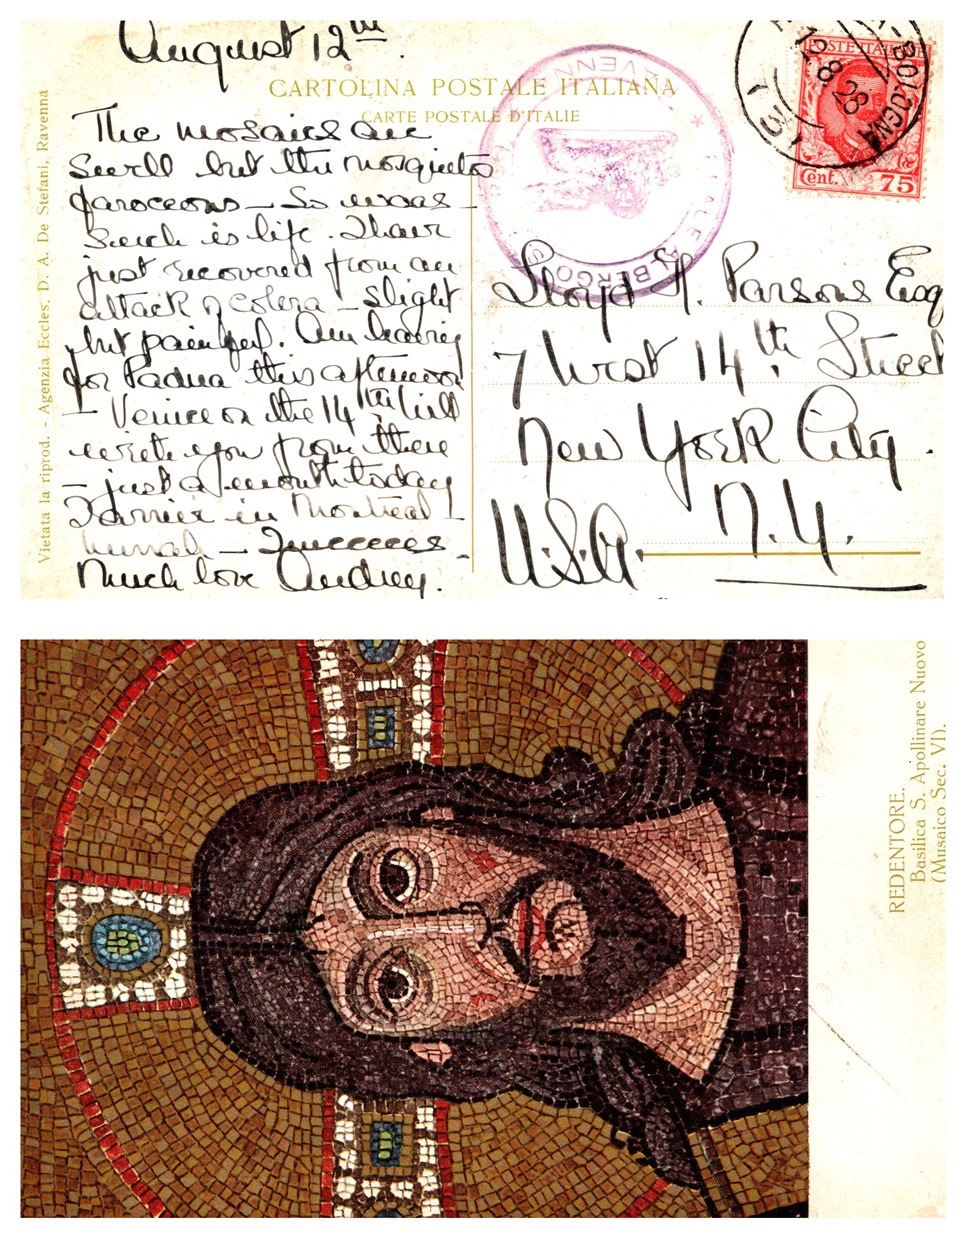 August 12th.
CARTOLINA POSTALE ITALIANA
CARTE POSTALE D'ITALIE
Vietata la riprod. - Agenzia Eccles. D. A. De Stefani, Ravenna
The mosaics are
swell but the mosquitos
ferocious – So was –
Such is life. I have
just recovered from an
attack of colera – slight
but painful. Am leaving
for Padua this afternoon
– Venice on the 14th Will
write you from there
– just a month today
I arrive in Montreal –
hurrah –
Much love Audrey.
POSTE ITALIANE
Cent. 75
BOLOGNA
12 8 28
RAVENN
ALBERGO
Lloyd H. Parsons Esq
7 West 14th. Street
New York City.
U.S.A. N.Y.
REDENTORE.
Basilica S. Apollinare Nuovo
(Musaico Sec. VI).